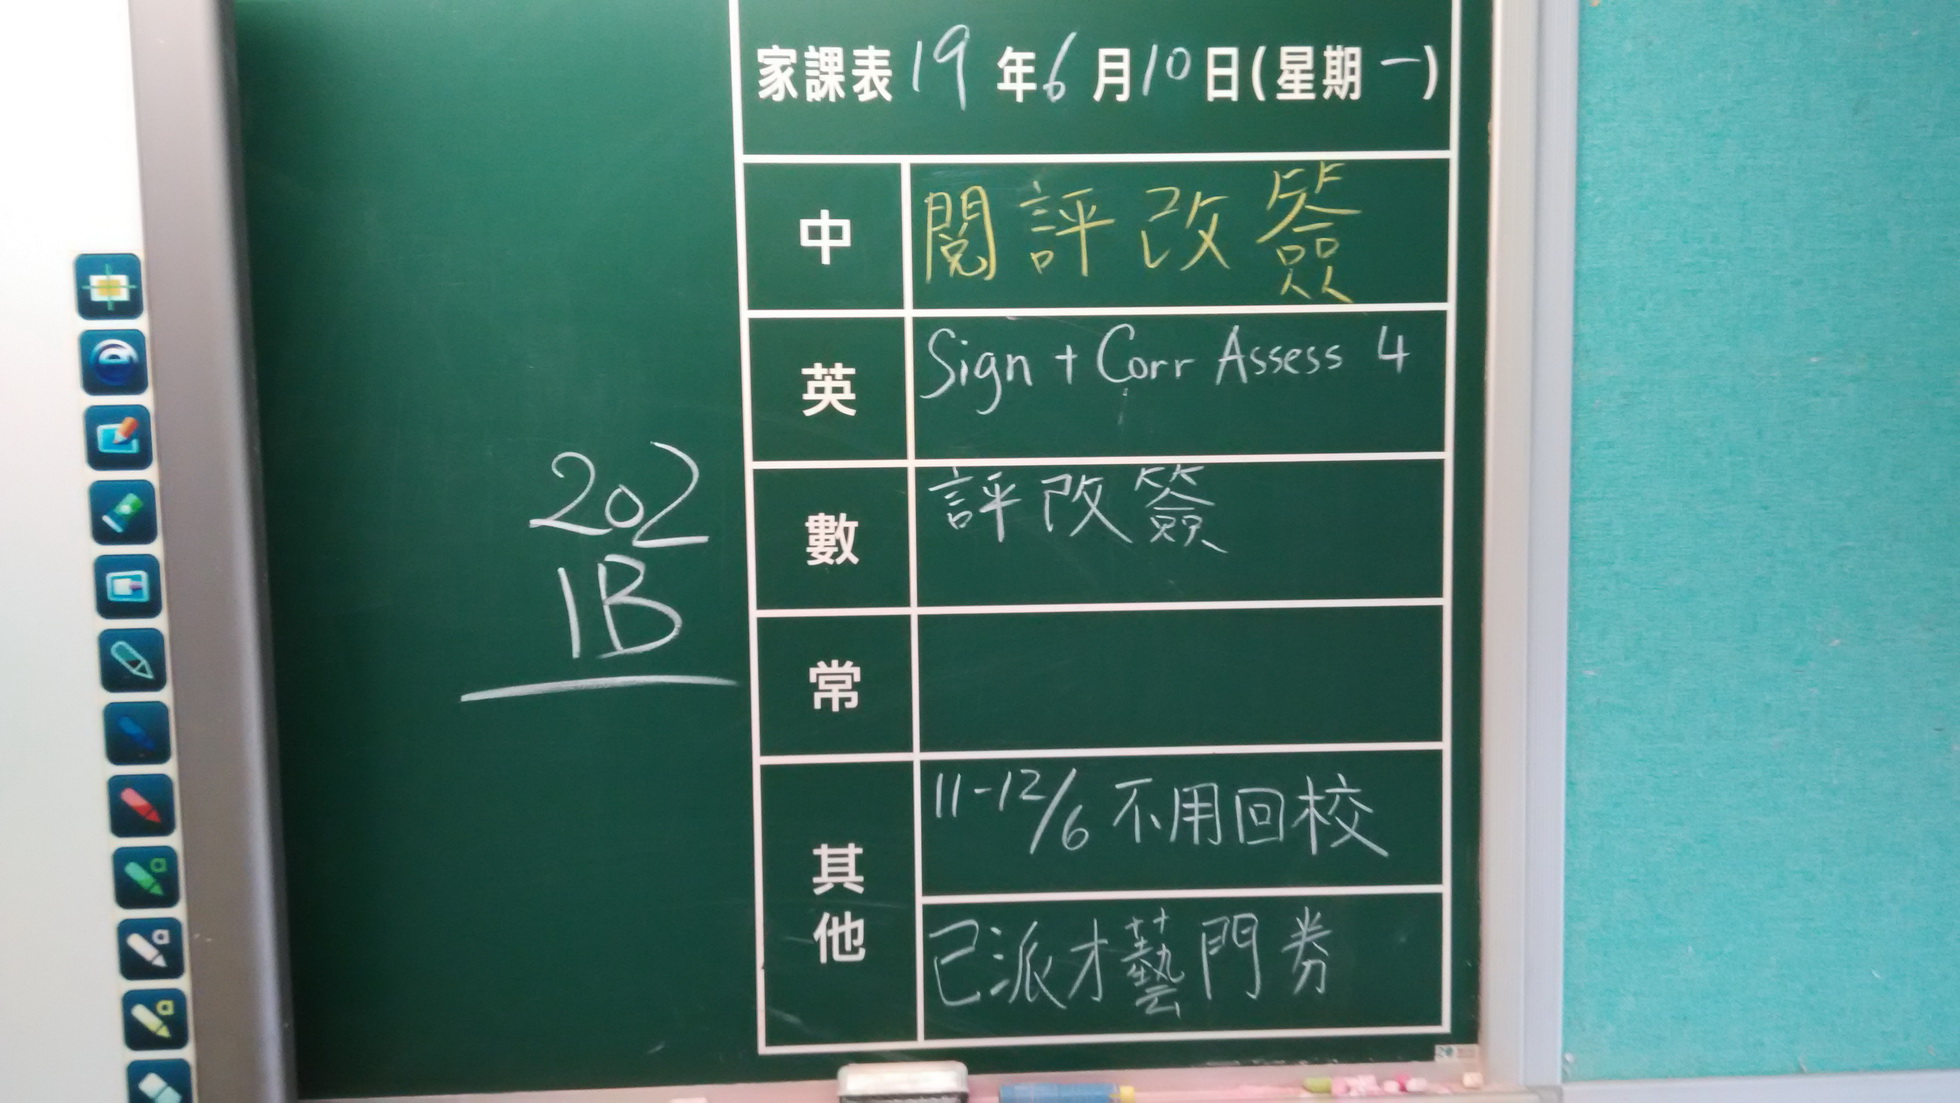 家課表 19 年 6 月 10 日 (星期 一)
中 閱評改簽
英 Sign + Corr Assess 4
202
1B
數 評改簽
常
其他
11-12/6 不用回校
已派才藝門券